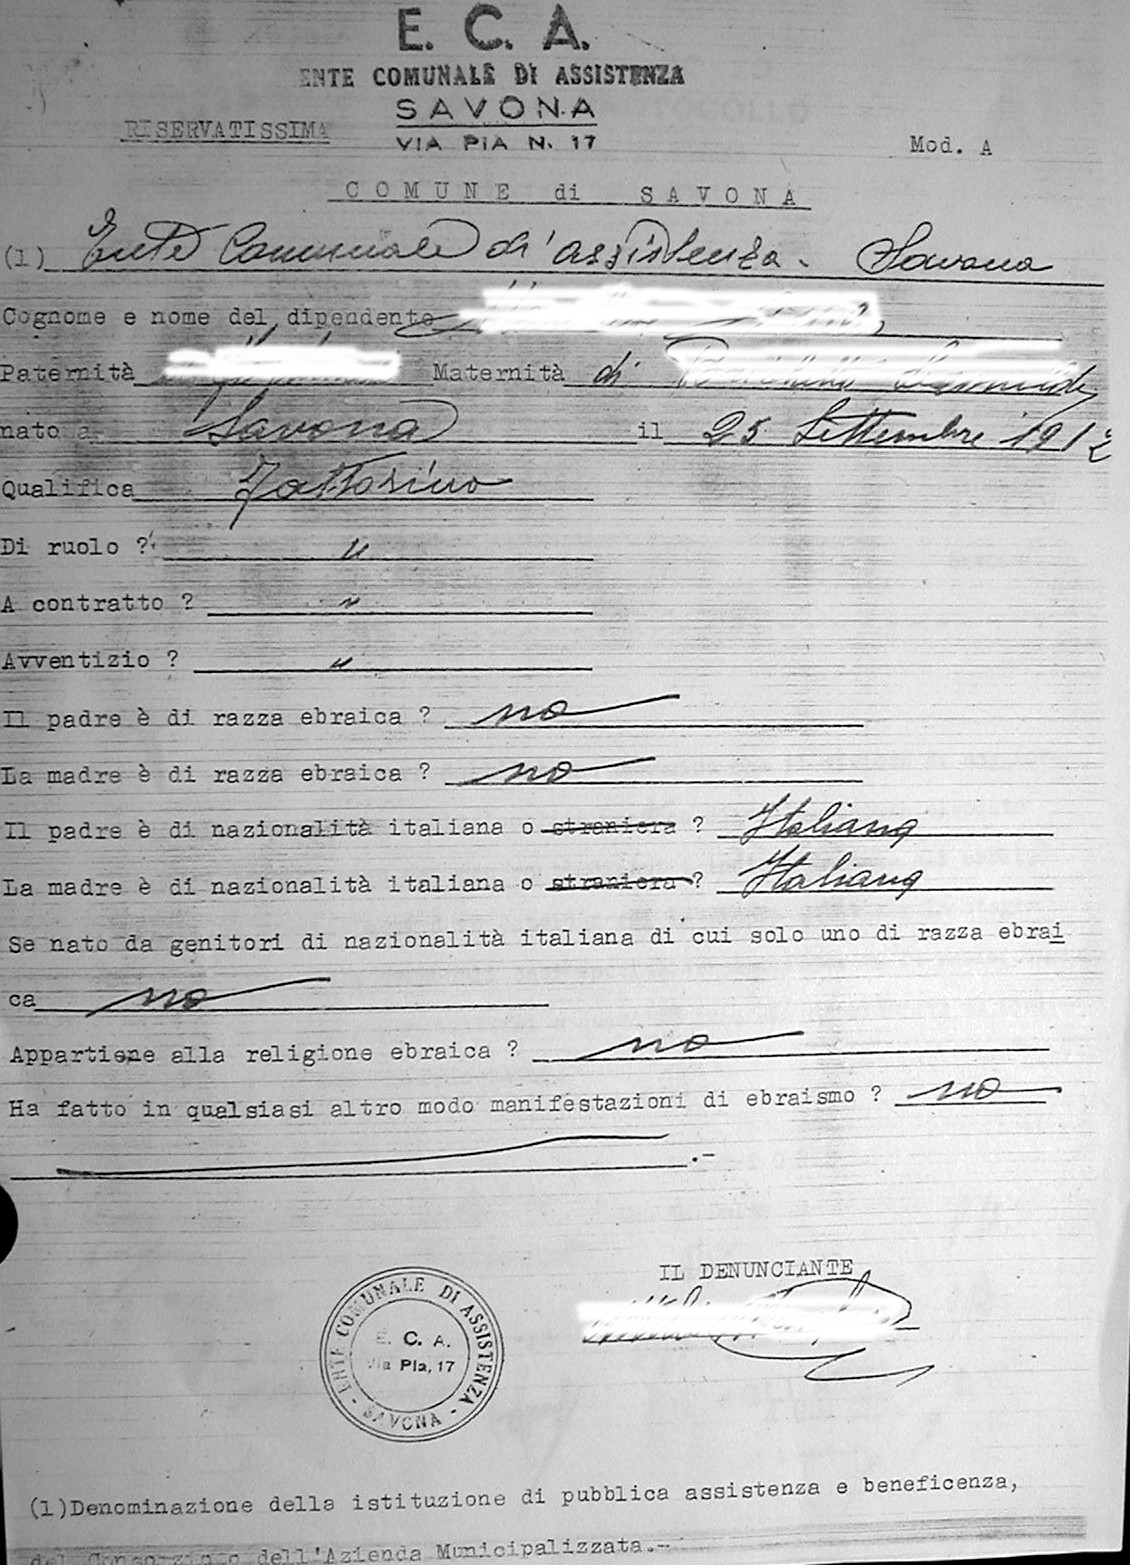 E. C. A.
ENTE COMUNALE DI ASSISTENZA
SAVONA
RISERVATISSIMA
VIA PIA N. 17
Mod. A
COMUNE di SAVONA
(1) Ente Comunale di assistenza. Savona
Cognome e nome del dipendente
Paternità Maternità di
nato a Savona il 25 Settembre 1912
Qualifica Fattorino
Di ruolo ? "
A contratto ? "
Avventizio ? "
Il padre è di razza ebraica ? no
La madre è di razza ebraica ? no
Il padre è di nazionalità italiana o straniera ? Italiana
La madre è di nazionalità italiana o straniera ? Italiana
Se nato da genitori di nazionalità italiana di cui solo uno di razza ebrai
ca no
Appartiene alla religione ebraica ? no
Ha fatto in qualsiasi altro modo manifestazioni di ebraismo ? no
.-
IL DENUNCIANTE
ENTE COMUNALE DI ASSISTENZA
E. C. A.
Via Pia, 17
- SAVONA -
(1)Denominazione della istituzione di pubblica assistenza e beneficenza,
del Consorzio dell'Azienda Municipalizzata.-